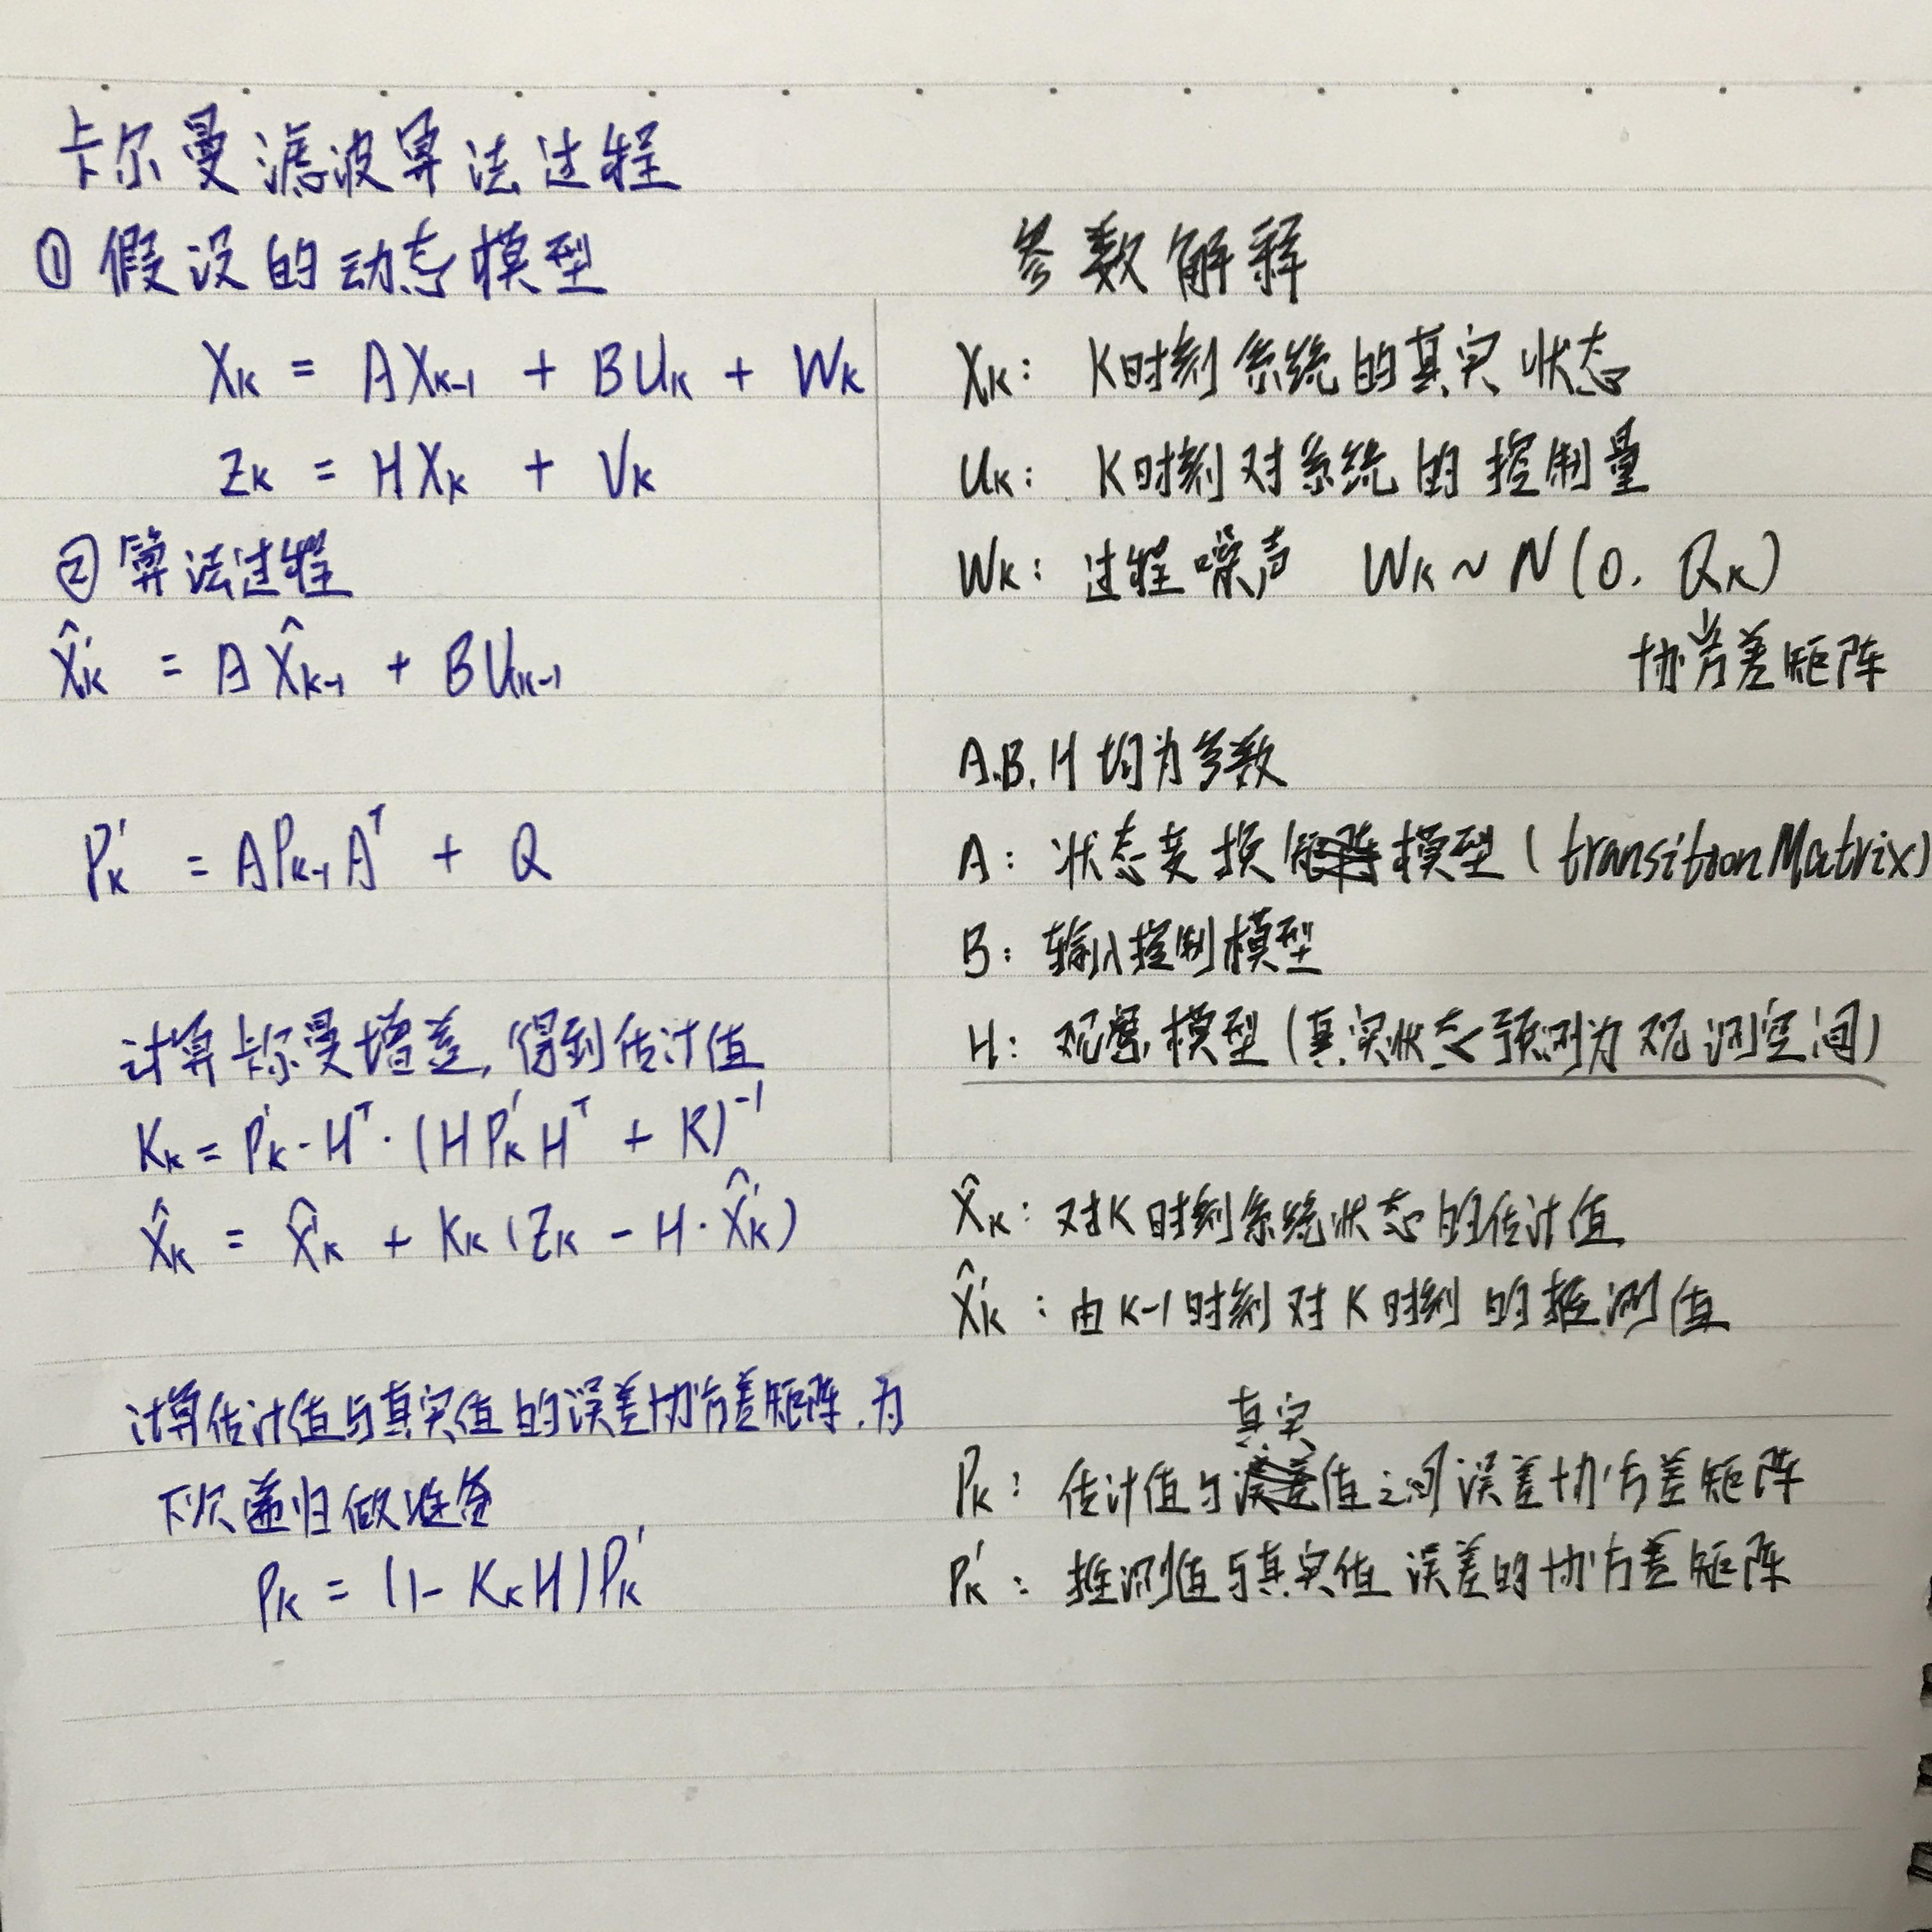 卡尔曼滤波算法过程
① 假设的动态模型
X_k = AX_{k-1} + BU_k + W_k
Z_k = HX_k + V_k
② 算法过程
X̂'_k = AX̂_{k-1} + BU_{k-1}
P'_k = AP_{k-1}A^T + Q
计算卡尔曼增差,得到估计值
K_k = P'_k · H^T · (HP'_kH^T + R)^{-1}
X̂_k = X̂'_k + K_k(Z_k - H·X̂'_k)
计算估计值与真实值的误差协方差矩阵,为
下次递归做准备
P_k = (1 - K_kH)P'_k
参数解释
X_k: K时刻系统的真实状态
U_k: K时刻对系统的控制量
W_k: 过程噪声 W_k ~ N(0, Q_k)
协方差矩阵
A.B.H 均为参数
A: 状态变换模型 (transitionMatrix)
B: 输入控制模型
H: 观察模型 (真实状态预测为观测空间)
X̂_k: 对K时刻系统状态的估计值
X̂'_k: 由K-1时刻对K时刻的推测值
真实
P_k: 估计值与值之间误差协方差矩阵
P'_k: 推测值与真实值误差的协方差矩阵